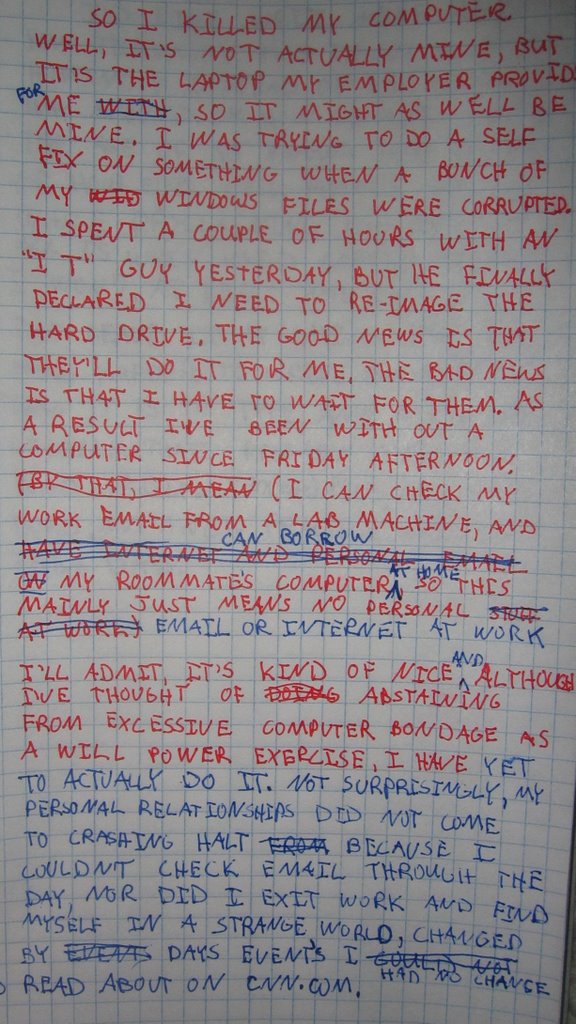 SO I KILLED MY COMPUTER.
WELL, IT'S NOT ACTUALLY MINE, BUT
IT'S THE LAPTOP MY EMPLOYER PROVID
FOR ME WITH, SO IT MIGHT AS WELL BE
MINE. I WAS TRYING TO DO A SELF
FIX ON SOMETHING WHEN A BUNCH OF
MY WID WINDOWS FILES WERE CORRUPTED.
I SPENT A COUPLE OF HOURS WITH AN
"I T" GUY YESTERDAY, BUT HE FINALLY
DECLARED I NEED TO RE-IMAGE THE
HARD DRIVE. THE GOOD NEWS IS THAT
THEY'LL DO IT FOR ME, THE BAD NEWS
IS THAT I HAVE TO WAIT FOR THEM. AS
A RESULT I'VE BEEN WITH OUT A
COMPUTER SINCE FRIDAY AFTERNOON.
(BY THAT, I MEAN (I CAN CHECK MY
WORK EMAIL FROM A LAB MACHINE, AND
CAN BORROW
HAVE INTERNET AND PERSONAL EMAIL
ON MY ROOMMATE'S COMPUTER AT HOME SO THIS
MAINLY JUST MEANS NO PERSONAL STUFF
AT WORK) EMAIL OR INTERNET AT WORK
I'LL ADMIT, IT'S KIND OF NICE, AND ALTHOUGH
I'VE THOUGHT OF DOING ABSTAINING
FROM EXCESSIVE COMPUTER BONDAGE AS
A WILL POWER EXERCISE, I HAVE YET
TO ACTUALLY DO IT. NOT SURPRISINGLY, MY
PERSONAL RELATIONSHIPS DID NOT COME
TO CRASHING HALT FROM BECAUSE I
COULDN'T CHECK EMAIL THROUGH THE
DAY, NOR DID I EXIT WORK AND FIND
MYSELF IN A STRANGE WORLD, CHANGED
BY EVENTS DAYS EVENT'S I COULD NOT
HAD NO CHANCE
READ ABOUT ON CNN.COM.